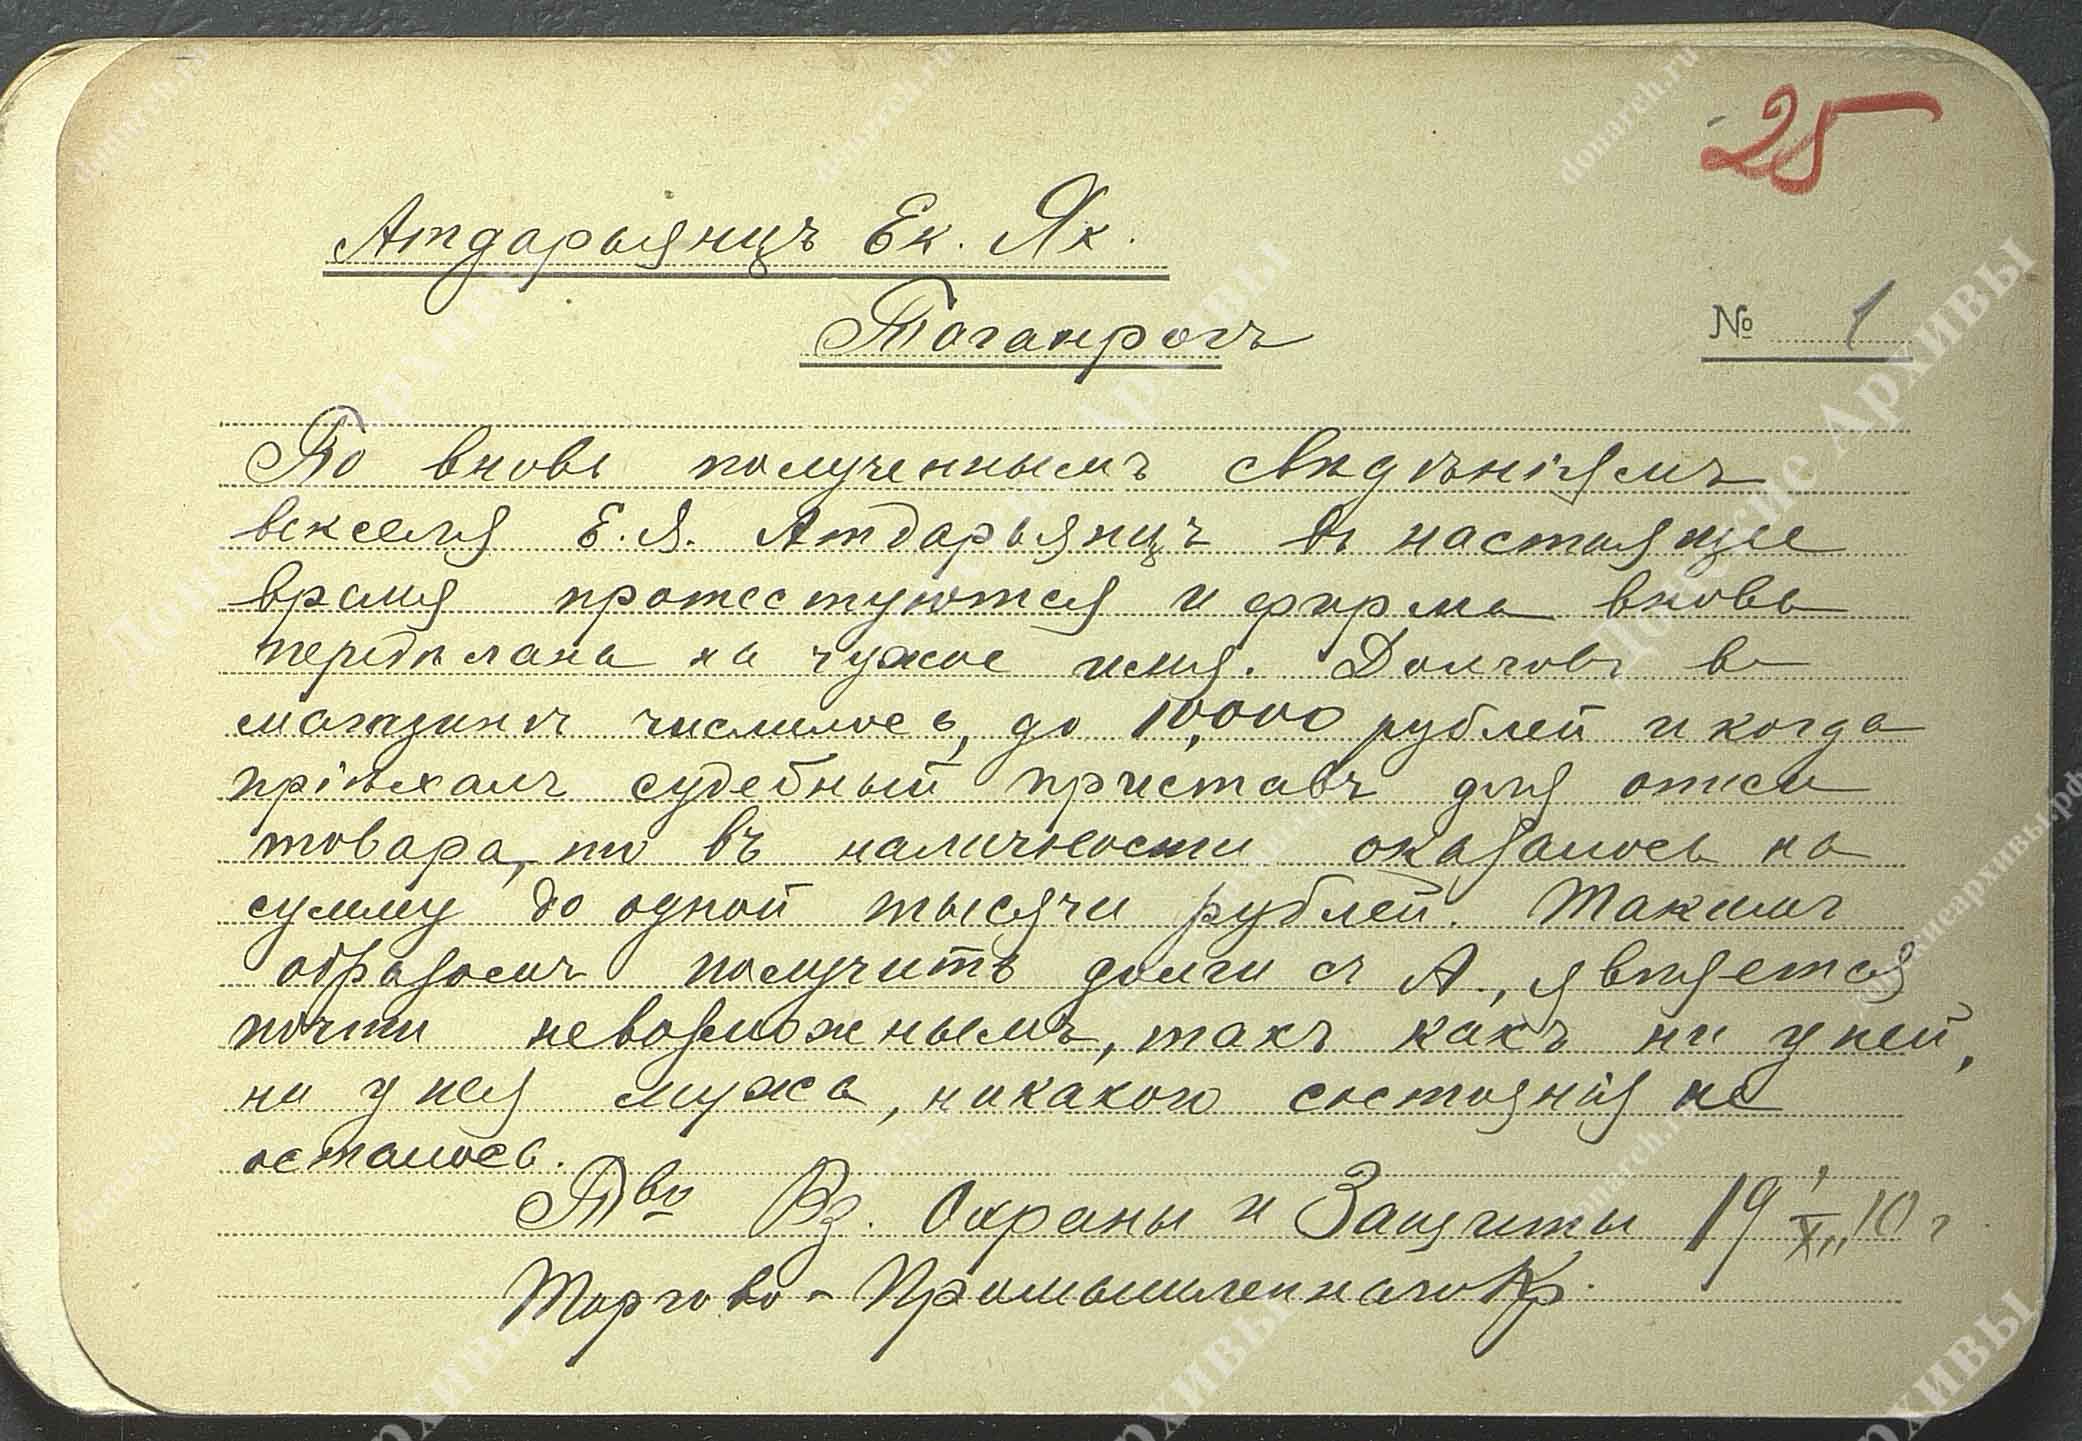 25
Атдарьянцъ Ек. Як.
Таганрогъ
№ 1
По вновь полученнымъ свѣдѣніямъ
векселя Е.Я. Атдарьянцъ въ настоящее
время протестуются и фирма вновь
передѣлана на чужое имя. Долговъ въ
магазинѣ числилось, до 10,000 рублей и когда
пріѣхалъ судебный приставъ для описи
товара, то въ наличности оказалось на
сумму до одной тысячи рублей. Такимъ
образомъ получить долги съ А., является
почти невозможнымъ, такъ какъ ни у ней,
ни у нея мужа, никакого состоянія не
осталось.
Тво Вз. Охраны и Защиты 19 1/X 10 г
Торгово-Промышленнаго Кр.